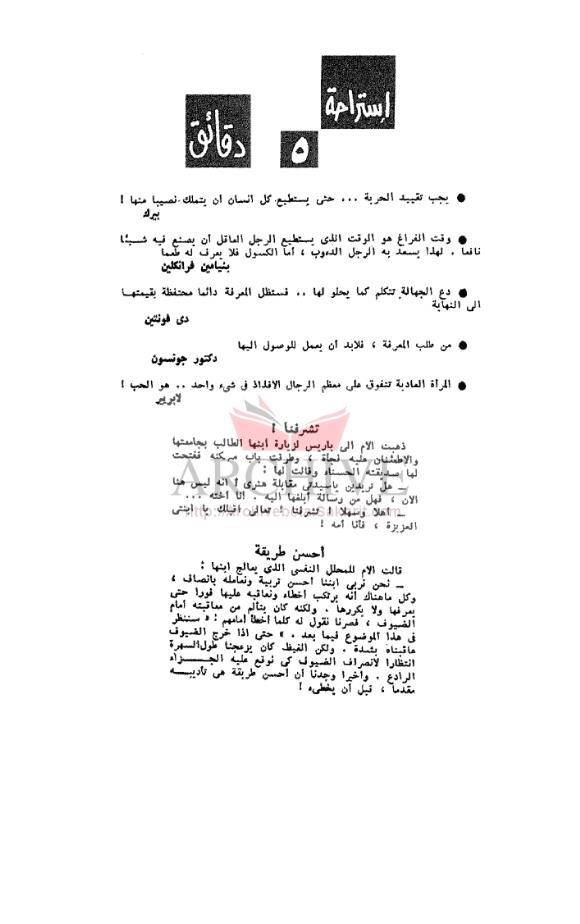 إستراحة
٥
دقائق
● يجب تقييد الحرية ... حتى يستطيع كل انسان أن يتملك نصيبا منها !
بيرك
● وقت الفراغ هو الوقت الذى يستطيع الرجل العاقل أن يصنع فيه شيئا
نافعا . لهذا يسعد به الرجل الدءوب ، أما الكسول فلا يعرف له طعما
بنيامين فرانكلين
● دع الجهالة تتكلم كما يحلو لها .. فستظل المعرفة دائما محتفظة بقيمتها
الى النهاية
دى فونتين
● من طلب المعرفة ، فلابد أن يعمل للوصول اليها
دكتور جونسون
● المرأة العادية تتفوق على معظم الرجال الافذاذ فى شىء واحد .. هو الحب !
لابريير
تشرفنا !
ذهبت الام الى باريس لزيارة ابنها الطالب بجامعتها
والاطمئنان عليه فجأة ، وطرقت باب مسكنه ففتحت
لها صديقته الحسناء وقالت لها :
ـ هل تريدين ياسيدتى مقابلة هنرى ؟ انه ليس هنا
الان ، فهل من رسالة أبلغها اليه . أنا أخته ...
ـ أهلا وسهلا ! تشرفنا ! تعالى أقبلك يا ابنتى
العزيزة ، فأنا أمه !
ARCHIVE
أحسن طريقة
قالت الام للمحلل النفسى الذي يعالج ابنها :
ـ نحن نربى ابننا أحسن تربية ونعامله بانصاف ،
وكل ماهناك أنه يرتكب أخطاء ونعاقبه عليها فورا حتى
يعرفها ولا يكررها . ولكنه كان يتألم من معاقبته أمام
الضيوف ، فصرنا نقول له كلما أخطأ أمامهم : « سننظر
فى هذا الموضوع فيما بعد . » حتى اذا خرج الضيوف
عاقبناه بشدة . ولكن الغيظ كان يزعجنا طول السهرة
انتظارا لانصراف الضيوف كى نوقع عليه الجـــزاء
الرادع . وأخيرا وجدنا أن أحسن طريقة هى تأديبـــه
مقدما ، قبل أن يخطىء !